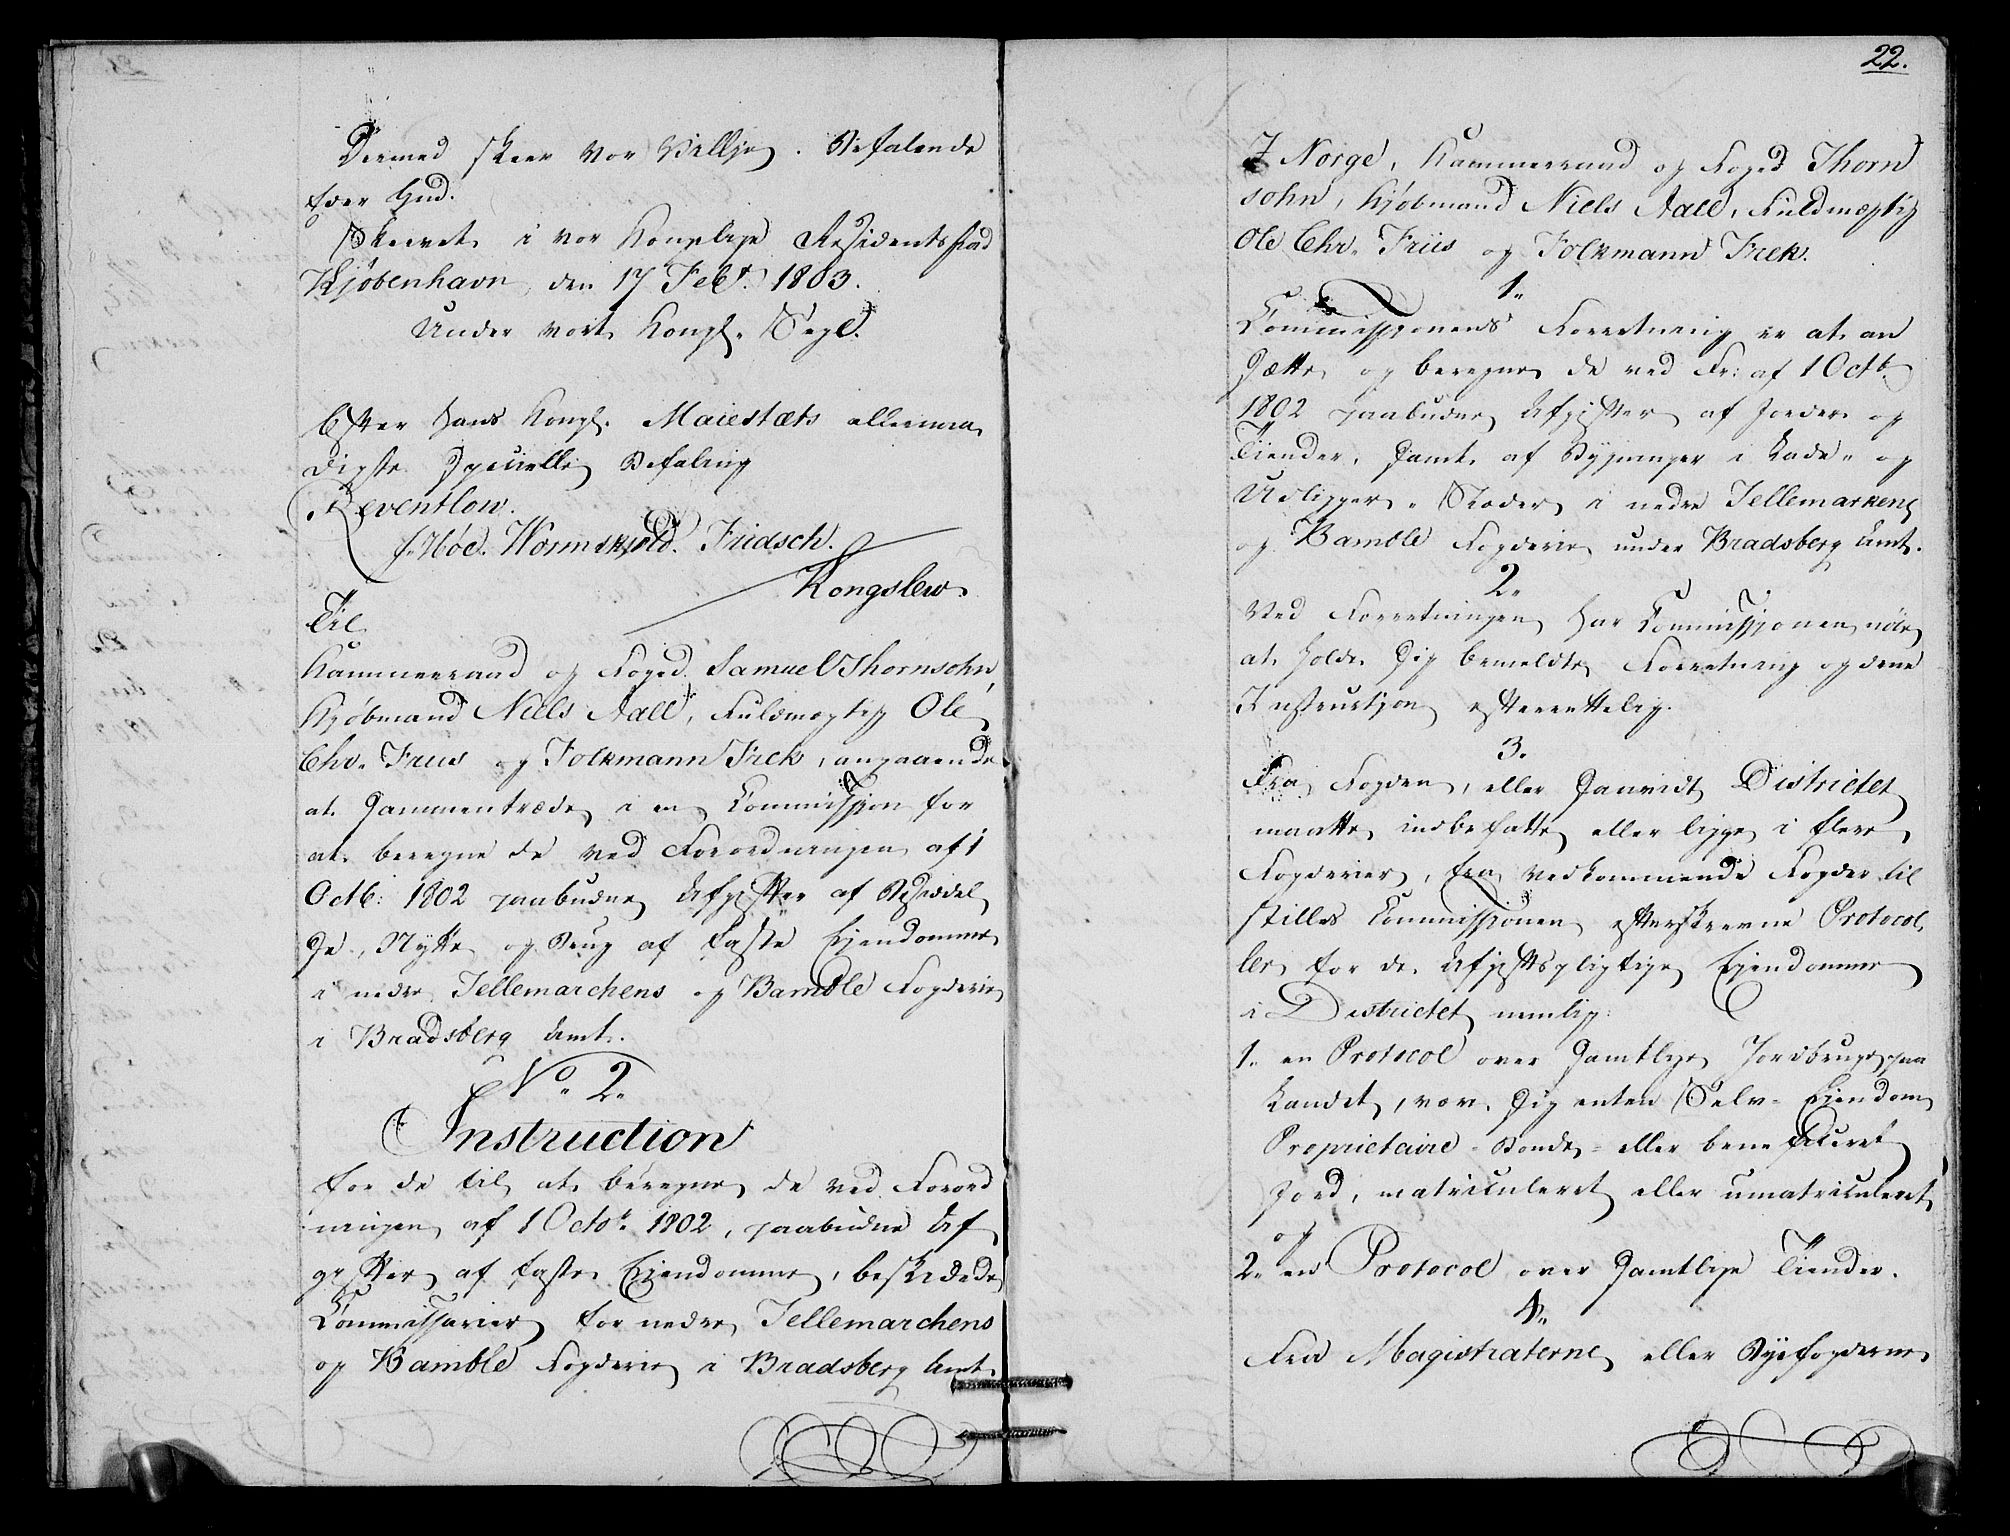 Dermed skeer Vor Villje. Befalende
Eder Gud.
Skrevet i vor Kongelige Residentsstad
Kjøbenhavn, den 17 Febr. 1803.
Under vort Kongl. Segl.
Efter Hans Kongl. Maiestæts allernaa
digste Specielle Befaling
Reventlow.
f. Høe. Wormskjold. Fridsch.
Kongslew.
Til
Kammerraad og Foged Samuel Thornsohn,
Kjøbmand Niels Aall, Fuldmægtig Ole
Chr. Friis og Folkmann Frek, angaaende
at sammentræde i en Commission for
at beregne de ved Forordningen af 1
Octb: 1802 paabudne Afgifter af Besiddel
se, Nytte og Brug af faste Eiendomme
i nedre Tellemarchens og Bamble Fogderie
i Bradsberg Amt.
No. 2.
Instruction
for de til at beregne de ved Forord
ningen af 1 Octbr. 1802, paabudne Af
gifter af faste Eiendomme, beskikkede
Commissarier for nedre Tellemarchens
og Bamble Fogderie i Bradsberg Amt
22.
I Norge, Kammerraad og Foged Thorn
sohn, Kjøbmand Niels Aall, Fuldmægtig
Ole Chr. Friis og Folkmann Frek.
1.
Commissionens Forretning er at an
sætte og beregne de ved Fr: af 1 Octb.
1802 paabudne Afgifter af Jorder og
Tiender, samt af Bygninger i Lade- og
Udligger-Stæder i nedre Tellemarkens
og Bamble Fogderie under Bradsberg Amt.
2.
Ved Forretningen har Commissionen nøie
at holde sig bemeldte Forretning og denne
Instruction efterrettelig.
3.
Fra Fogden, eller saavidt Districtet
maatte indbefatte eller ligge i flere
Fogderier, fra vedkommende Fogder til
stilles Commissionen efterskrevne Protocol
ler for de Afgiftspligtige Eiendomme
i Districtet, nemlig:
1. en Protocol over samtlige Jordbruge paa
Landet, være sig enten Selv-Eiendom,
Proprietaire-Bonde- eller beneficeret
Jord, matriculeret eller umatriculeret,
og
2. en Protocol over samtlige Tiender.
4.
Fra Magistraterne, eller Byefogderne